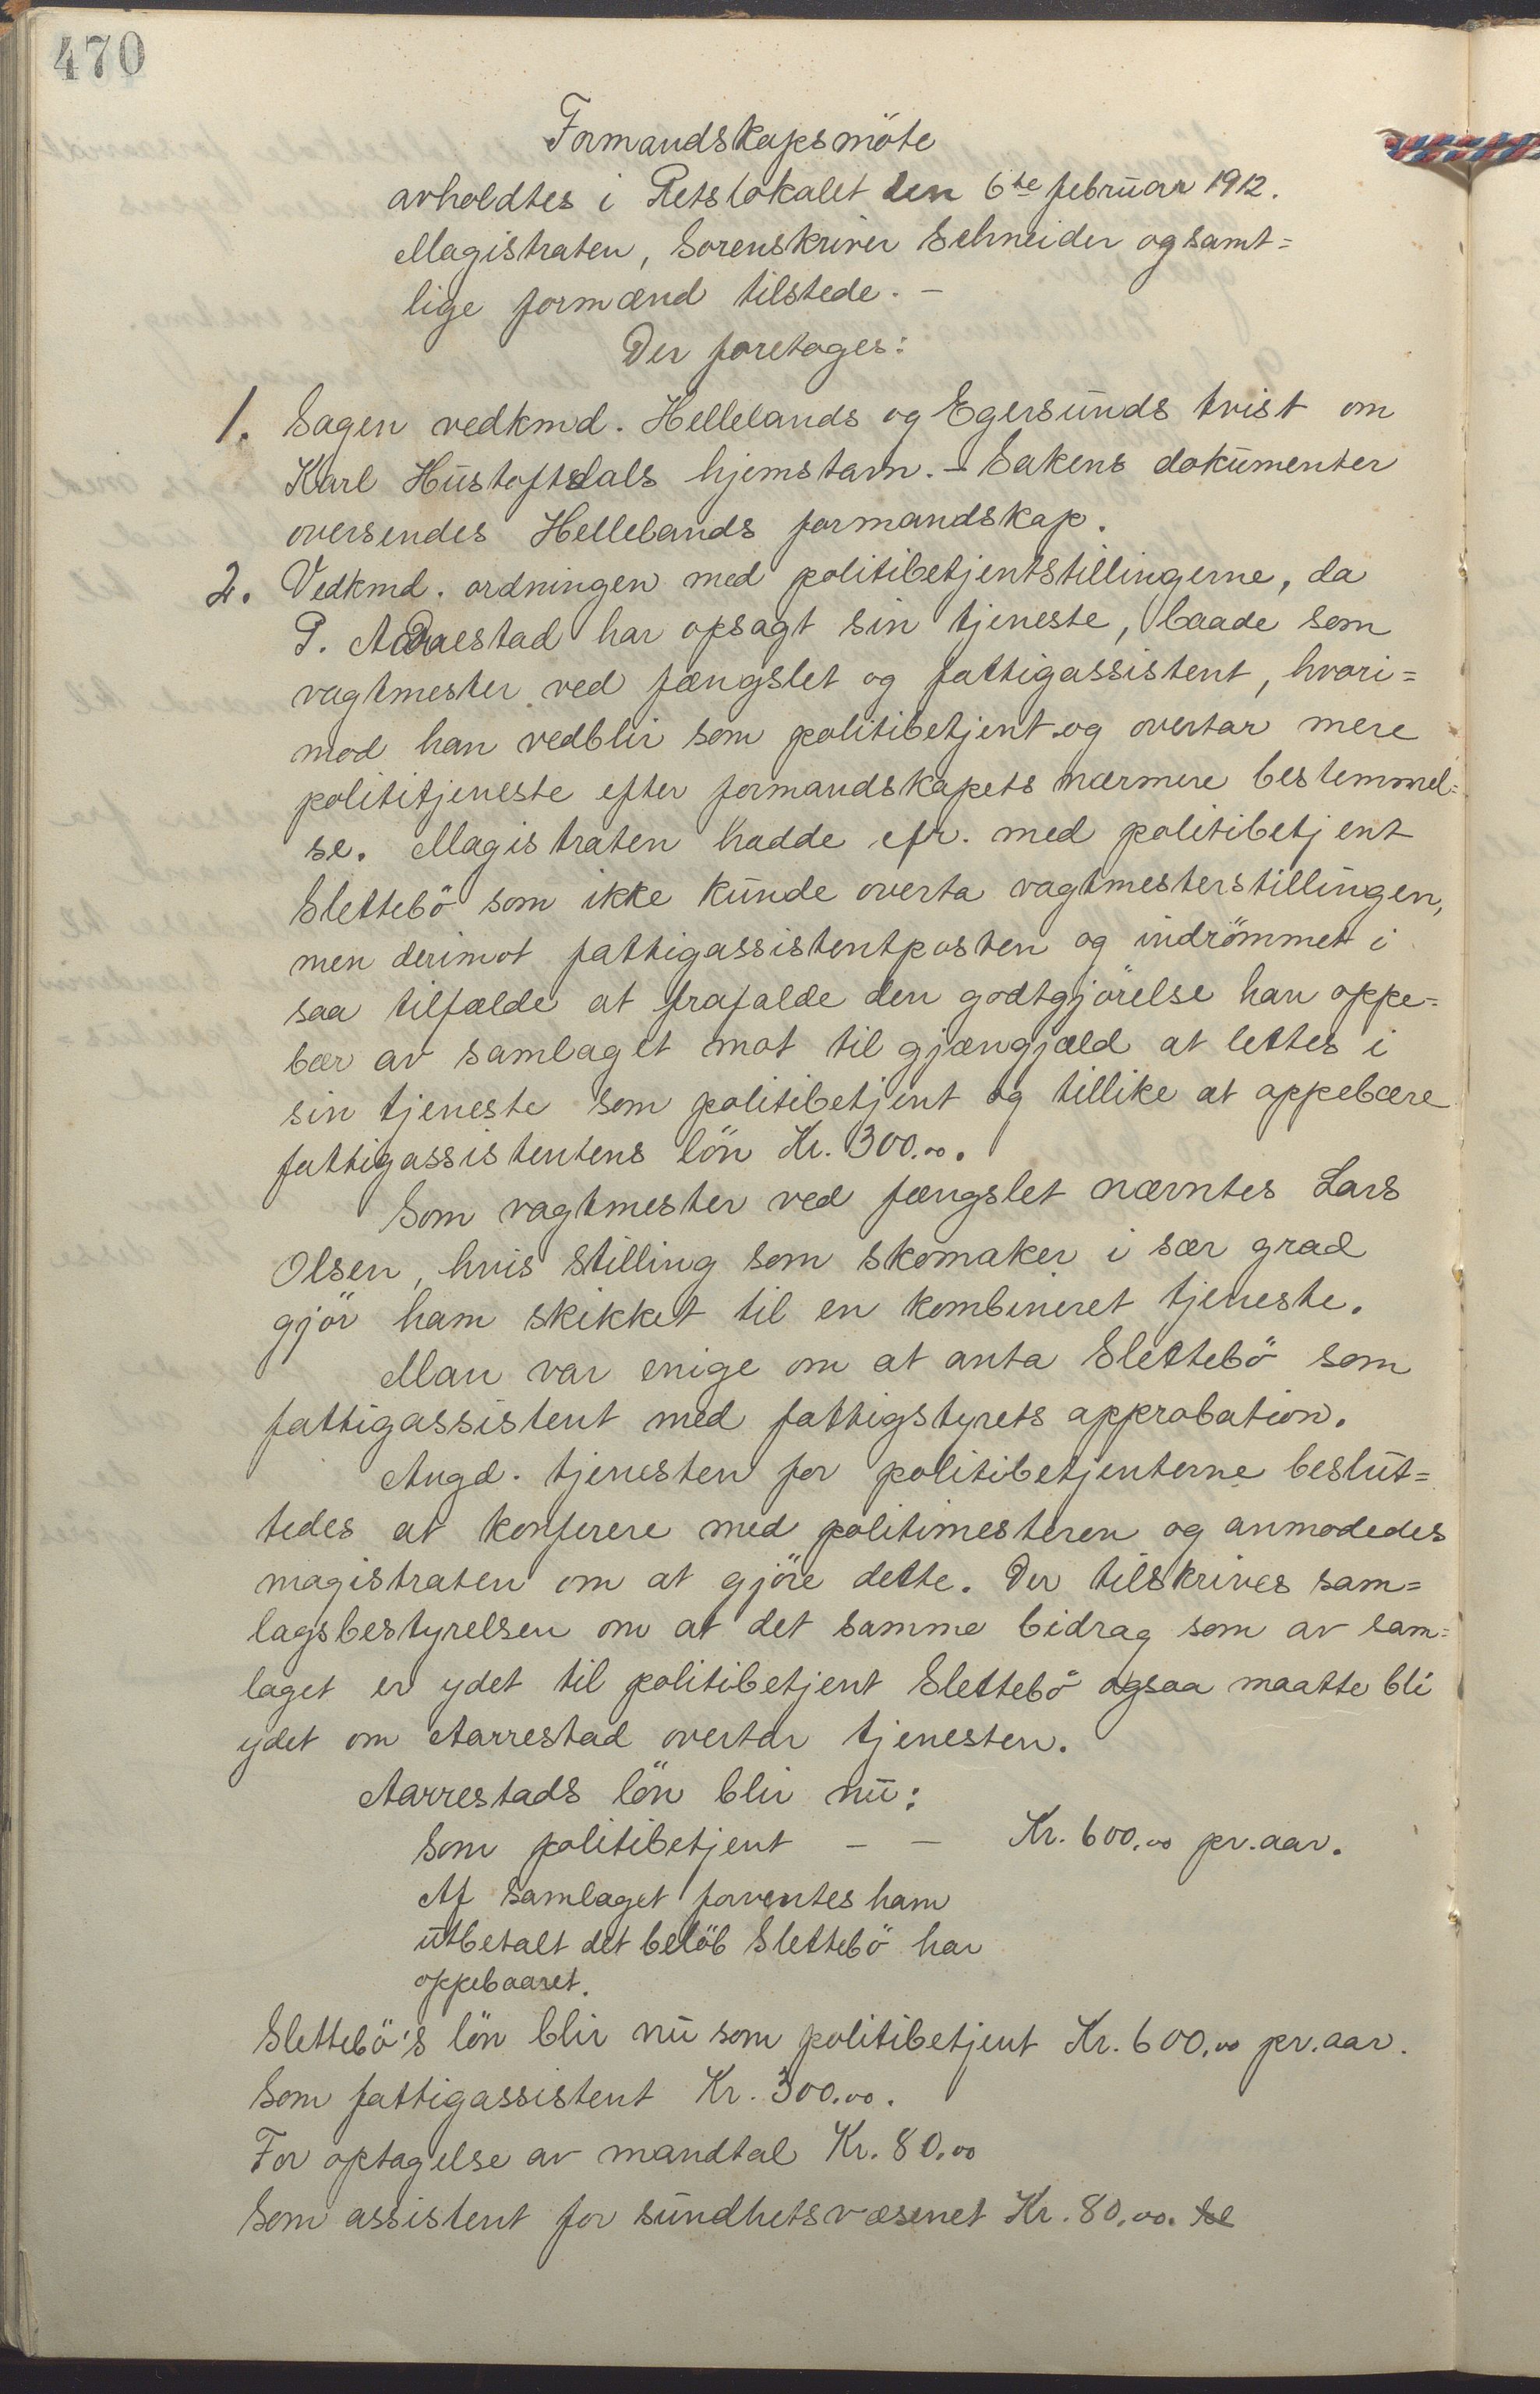 470
Formandskapsmöte
avholdtes i Retslokalet den 6te februar 1912.
Magistraten, Sorenskriver Schneider og samt=
lige formænd tilstede. —
Der foretages:
1. Sagen vedkmd. Hellelands og Egersunds tvist om
Karl Hustoftsdals hjemstavn. – Sakens dokumenter
oversendes Hellelands formandskap.
2. Vedkmd. ordningen med politibetjentstillingerne, da
P. Aarrestad har opsagt sin tjeneste, baade som
vagtmester ved fængslet og fattigassistent, hvori=
mod han vedblir som politibetjent og overtar mere
polititjeneste efter formandskapets nærmere bestemmel=
se. Magistraten hadde cfr. med politibetjent
Slettebö som ikke kunde overta vagtmesterstillingen,
men derimot fattigassistentposten og indrömmet i
saa tilfælde at frafalde den godtgjörelse han oppe=
bær av samlaget mot til gjængjæld at lettes i
sin tjeneste som politibetjent og tillike at oppebære
fattigassistentens lön Kr. 300.00.
Som vagtmester ved fængslet nævntes Lars
Olsen, hvis stilling som skomaker i sær grad
gjör ham skikket til en kombineret tjeneste.
Man var enige om at anta Slettebö som
fattigassistent med fattigstyrets approbation.
Angd. tjenesten for politibetjenterne beslut=
tedes at konferere med politimesteren og anmodedes
magistraten om at gjöre dette. Der tilskrives sam=
lagsbestyrelsen om at det samme bidrag som av sam=
laget er ydet til politibetjent Slettebö ogsaa maatte bli
ydet om Aarrestad overtar tjenesten.
Aarrestads lön blir nu:
Som politibetjent — — Kr. 600.00 pr. aar.
Af samlaget forventes ham
utbetalt det belöb Slettebö har
oppebaaret.
Slettebö's lön blir nu som politibetjent Kr. 600.00 pr. aar.
Som fattigassistent Kr. 300.00.
For optagelse av mandtal Kr. 80.00
Som assistent for sundhetsvæsenet Kr. 80.00.